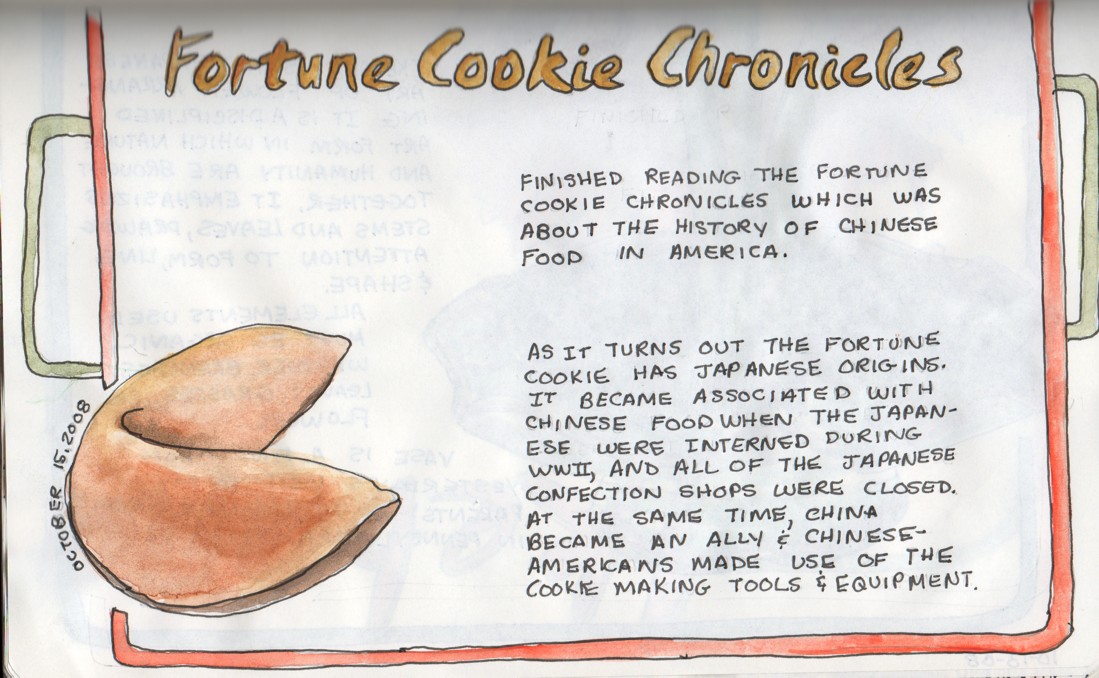 Fortune Cookie Chronicles
FINISHED READING THE FORTUNE
COOKIE CHRONICLES WHICH WAS
ABOUT THE HISTORY OF CHINESE
FOOD IN AMERICA.
AS IT TURNS OUT THE FORTUNE
COOKIE HAS JAPANESE ORIGINS.
IT BECAME ASSOCIATED WITH
CHINESE FOOD WHEN THE JAPAN-
ESE WERE INTERNED DURING
WWII, AND ALL OF THE JAPANESE
CONFECTION SHOPS WERE CLOSED.
AT THE SAME TIME, CHINA
BECAME AN ALLY & CHINESE-
AMERICANS MADE USE OF THE
COOKIE MAKING TOOLS & EQUIPMENT.
OCTOBER 15, 2008